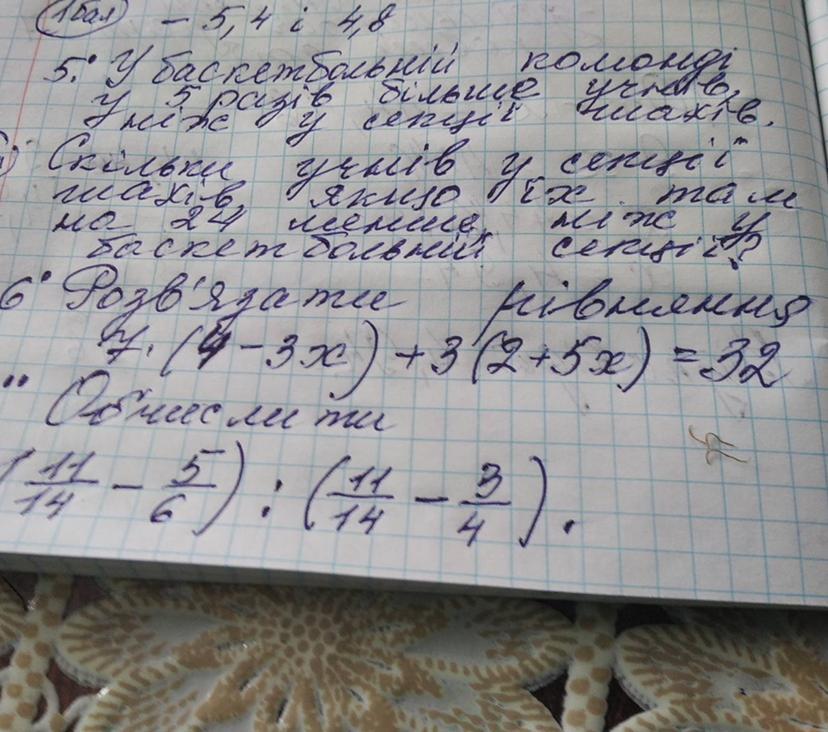 1 бал
- 5,4 і 4,8
5.° У баскетбольній команді
у 5 разів більше учнів,
ніж у секції шахів.
Скільки учнів у секції
шахів, якщо їх там
на 24 менше, ніж у
баскетбольній секції?
6° Розв'язати рівняння
7·(4-3x)+3(2+5x)=32
Обчислити
(11/14 - 5/6) : (11/14 - 3/4).